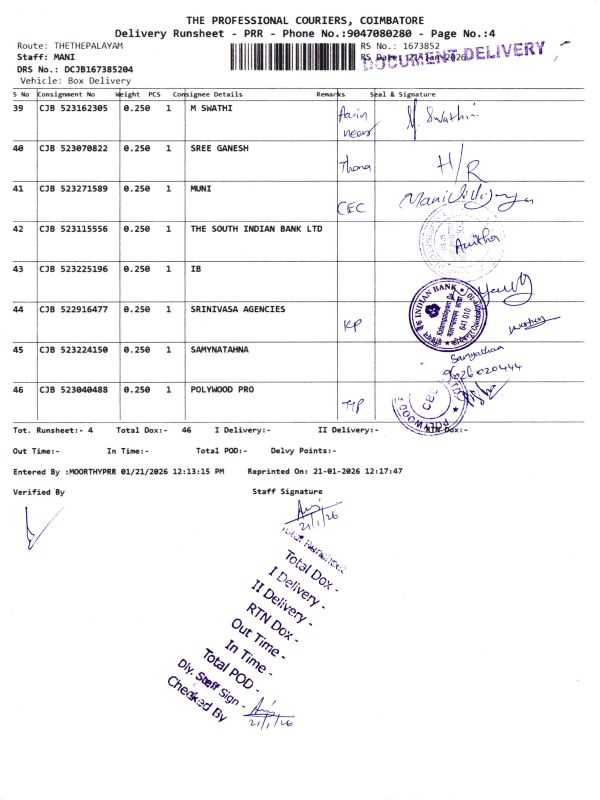 THE PROFESSIONAL COURIERS, COIMBATORE
Delivery Runsheet - PRR - Phone No.:9047080280 - Page No.:4
Route: THETHEPALAYAM
RS No.: 1673852
Staff: MANI
RS Date: 21-Jan-2026
DOCUMENT DELIVERY
DRS No.: DCJB167385204
Vehicle: Box Delivery
S No Consignment No Weight PCS Consignee Details Remarks Seal & Signature
39 CJB 523162305 0.250 1 M SWATHI M. Swathi
40 CJB 523070822 0.250 1 SREE GANESH H/R
41 CJB 523271589 0.250 1 MUNI CEC
42 CJB 523115556 0.250 1 THE SOUTH INDIAN BANK LTD
43 CJB 523225196 0.250 1 IB
INDIAN BANK
641 010
44 CJB 522916477 0.250 1 SRINIVASA AGENCIES KP
45 CJB 523224150 0.250 1 SAMYNATAHNA
46 CJB 523040488 0.250 1 POLYWOOD PRO
POLYWOOD
CBE
Tot. Runsheet:- 4 Total Dox:- 46 I Delivery:- II Delivery:- RTN Dox:-
Out Time:- In Time:- Total POD:- Delvy Points:-
Entered By :MOORTHYPRR 01/21/2026 12:13:15 PM Reprinted On: 21-01-2026 12:17:47
Verified By Staff Signature
21/1/26
Total Runsheet
Total Dox -
I Delivery -
II Delivery -
RTN Dox -
Out Time -
In Time -
Total POD -
Dly. Staff Sign -
Checked By
21/1/26